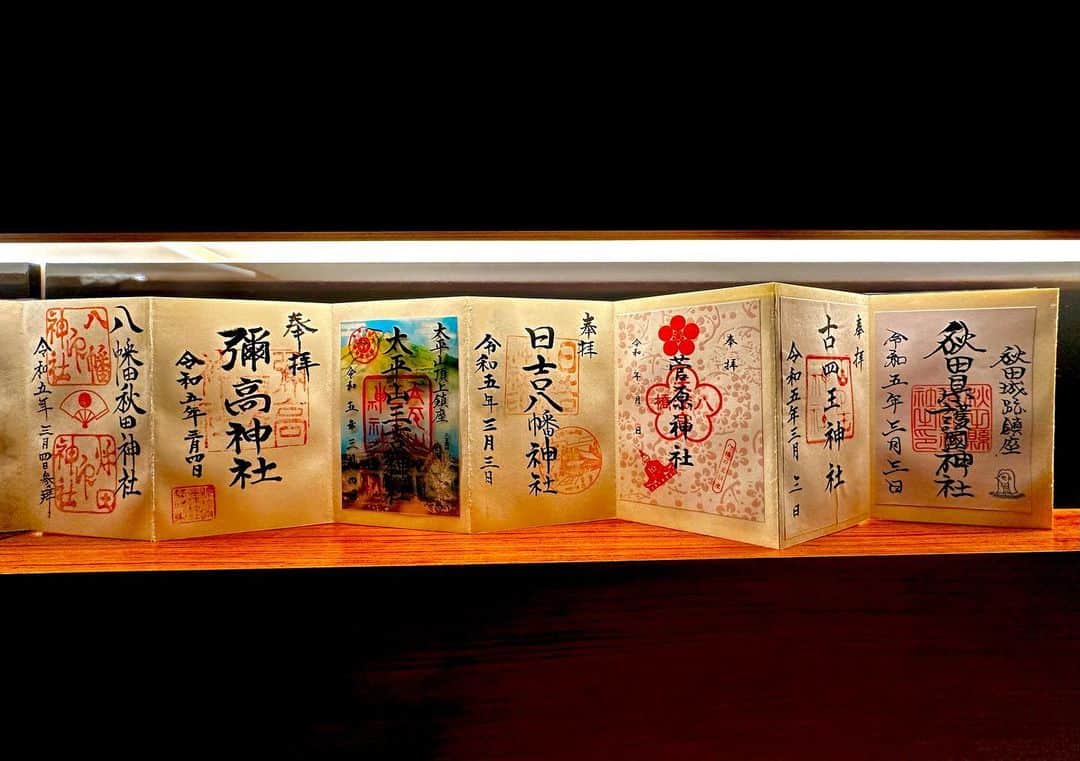 秋田城跡鎮座
秋田県護國神社
令和五年三月三日
奉拝
古四王神社
令和五年三月三日
奉拝
菅原神社
令和 年 月 日
奉拝
日吉八幡神社
令和五年三月三日
太平山頂上鎮座
太平山三吉神社
令和五年三
奉拝
彌高神社
令和五年三月四日
八幡秋田神社
令和五年三月四日参拝